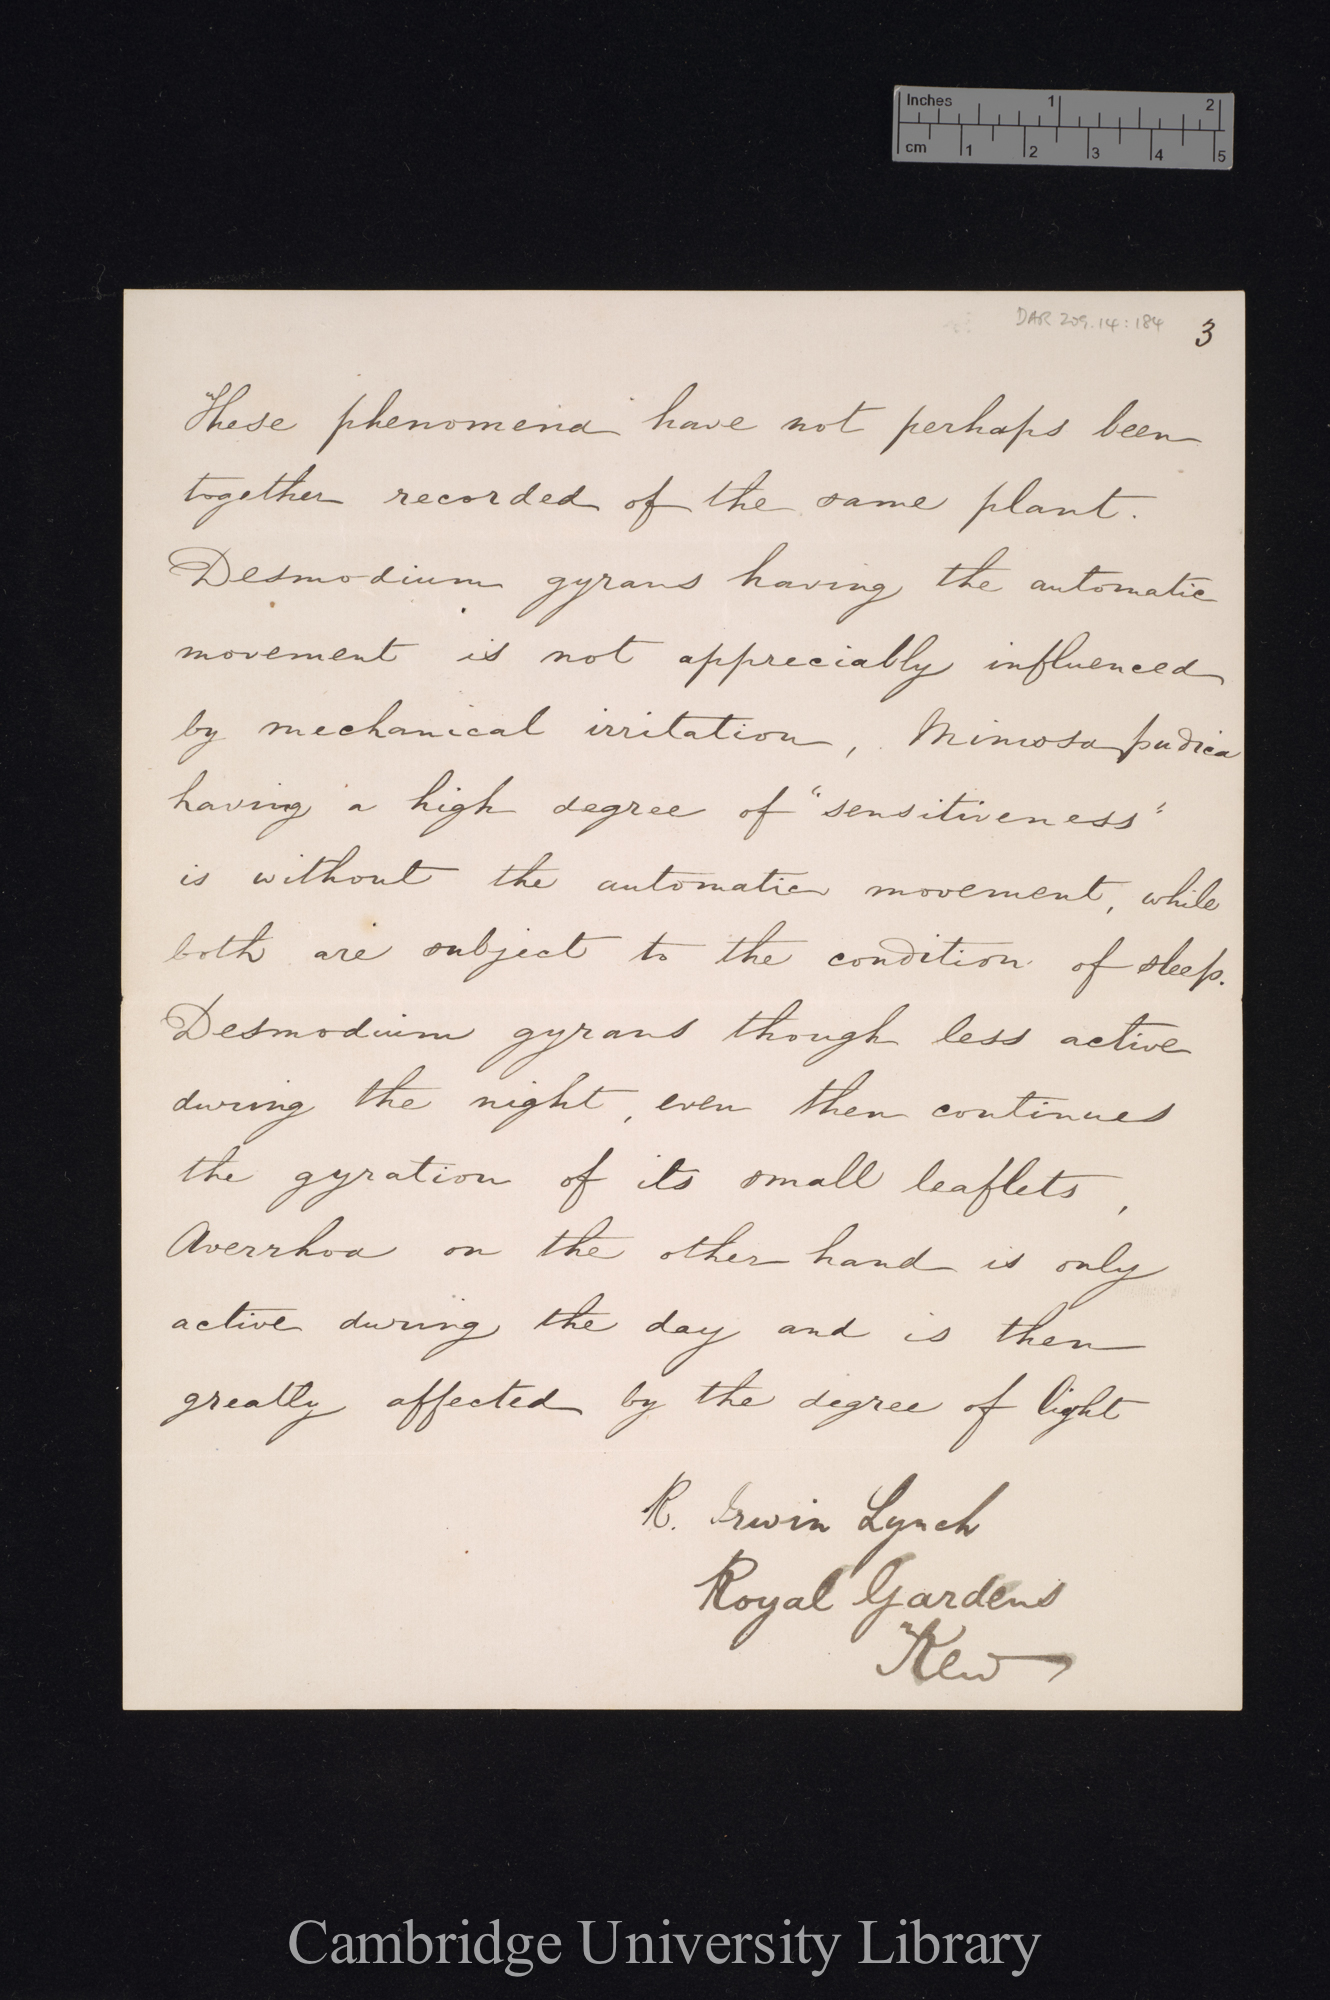 Inches 1 2
cm 1 2 3 4 5
DAR 209.14:184 3
These phenomena have not perhaps been
together recorded of the same plant.
Desmodium gyrans having the automatic
movement is not appreciably influenced
by mechanical irritation, Mimosa pudica
having a high degree of "sensitiveness"
is without the automatic movement, while
both are subject to the condition of sleep.
Desmodium gyrans though less active
during the night, even then continues
the gyration of its small leaflets,
Averrhoa on the other hand is only
active during the day and is then
greatly affected by the degree of light
R. Irwin Lynch
Royal Gardens
Kew
Cambridge University Library